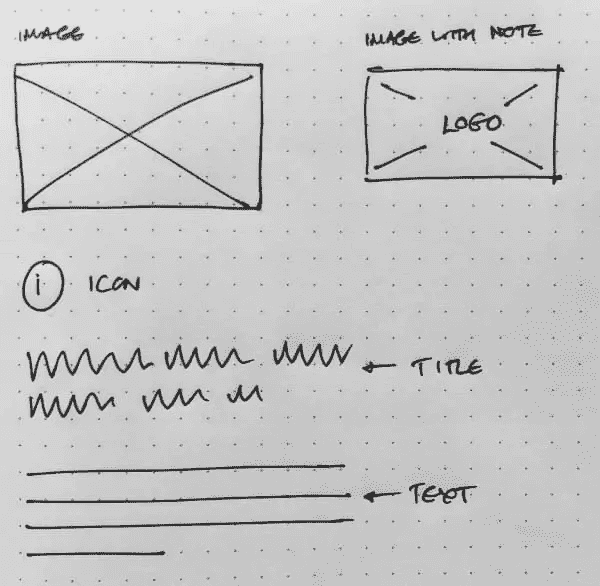 IMAGE
IMAGE WITH NOTE
LOGO
i ICON
← TITLE
← TEXT